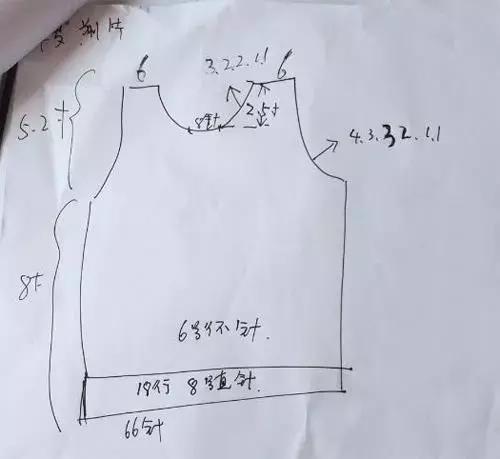 前片
6
3.2.2.1.1
6
5.2寸
8针
2.5寸
4.3.3 2.1.1
8寸
6号环针.
18行 8号直针.
66针